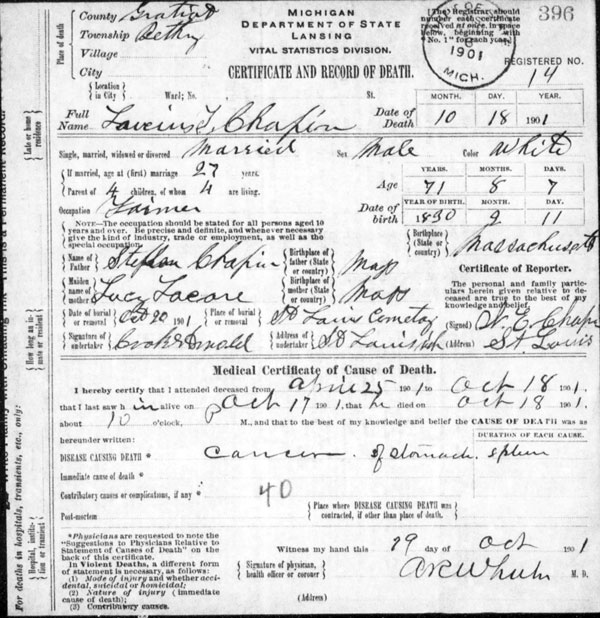 396
County Gratiot
Township Bethny
Village
City
Place of death
MICHIGAN
DEPARTMENT OF STATE
LANSING
VITAL STATISTICS DIVISION.
CERTIFICATE AND RECORD OF DEATH.
[The Registrar should number each certificate received at once, in space below, beginning with "No. 1" for each year.]
1901
MICH.
REGISTERED NO.
14
{Location in City} Ward; No. St.
Full Name T. Chapin
Date of Death
MONTH. DAY. YEAR.
10 18 1901
Single, married, widowed or divorced Married Sex Male Color White
{If married, age at (first) marriage 27 years.
{Parent of 4 children, of whom 4 are living.
Age
YEARS. MONTHS. DAYS.
71 8 7
Occupation Farmer
Date of birth
YEAR OF BIRTH. MONTH. DAY.
1830 2 11
{NOTE.—The occupation should be stated for all persons aged 10 years and over. Be precise and definite, and whenever necessary give the kind of industry, trade or employment, as well as the special occupation.
{Birthplace (State or country)} Massachusetts
{Name of Father Stephen Chapin
{Birthplace of father (State or country)} Mass
{Maiden name of mother Lucy
{Birthplace of mother (State or country)} Mass
Certificate of Reporter.
The personal and family particulars herein given relative to deceased are true to the best of my knowledge and belief.
{Date of burial or removal Oct 20 1901 {Place of burial or removal St Louis Cemetery
(Signed) W. E. Chapin
{Signature of undertaker Crook &
{Address of undertaker St Louis Mich
(Address) St. Louis
Medical Certificate of Cause of Death.
I hereby certify that I attended deceased from April 25 1901 to Oct 18 1901.
that I last saw h im alive on Oct 17 1901, that he died on Oct 18 1901,
about 10 o'clock, P M., and that to the best of my knowledge and belief the CAUSE OF DEATH was as
hereunder written:
DURATION OF EACH CAUSE.
DISEASE CAUSING DEATH * cancer of stomach
Immediate cause of death *
Contributory causes or complications, if any *
40
Post-mortem
{Place where DISEASE CAUSING DEATH was contracted, if other than place of death.
*Physicians are requested to note the "Suggestions to Physicians Relative to Statement of Causes of Death" on the back of this certificate.
In Violent Deaths, a different form of statement is necessary, as follows:
(1) Mode of injury and whether accidental, suicidal or homicidal;
(2) Nature of injury (immediate cause of death);
(3) Contributory causes.
Witness my hand this 19 day of Oct 1901
{Signature of physician, health officer or coroner} M. D.
(Address)
Late or home residence
How long an inmate or resident
Hospital, institution or transient
For deaths in hospitals, transients, etc., only: